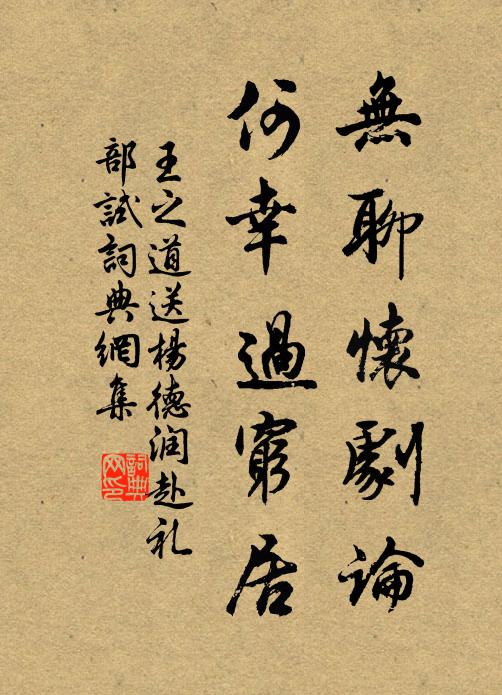 無聊懷劇論
何幸過窮居
王之道送楊德潤赴礼
部試詞典網集
詞典网印